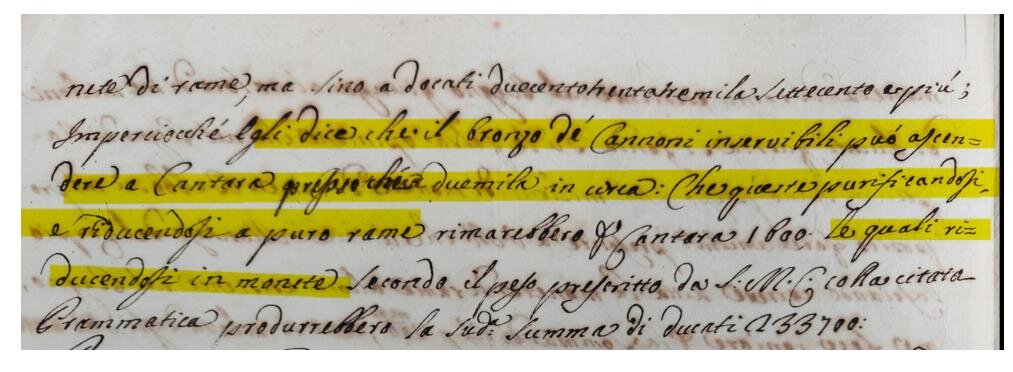 nete di rame, ma sino a docati duecentotrentatremila settecento e più;
Imperciocché Egli dice che il bronzo dé Cannoni inservibili puó ascen=
dere a Cantara duemila in circa: Che queste purificandosi,
e riducendosi a puro rame rimarebbero Cantara 1600. le quali ri=
ducendosi in monete secondo il peso prescritto da S. M. C. colla citata
Grammatica produrrebbero la sud.a summa di ducati 233700: